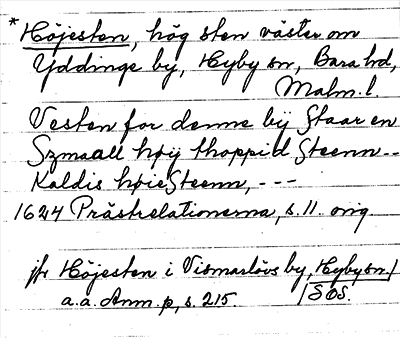 *Höjesten, hög sten väster om
Yddinge by, Hyby sn, Bara hd,
Malm. l.
Vesten for denne bij Staar en
Szmaall høij thoppid Steenn --
Kaldis høie Steenn, ---
1624 Prästrelationerna, s. 11. orig.
jfr Höjesten i Vismarlövs by, Hyby sn./
a. a. Anm. p, s. 215. /SOS.